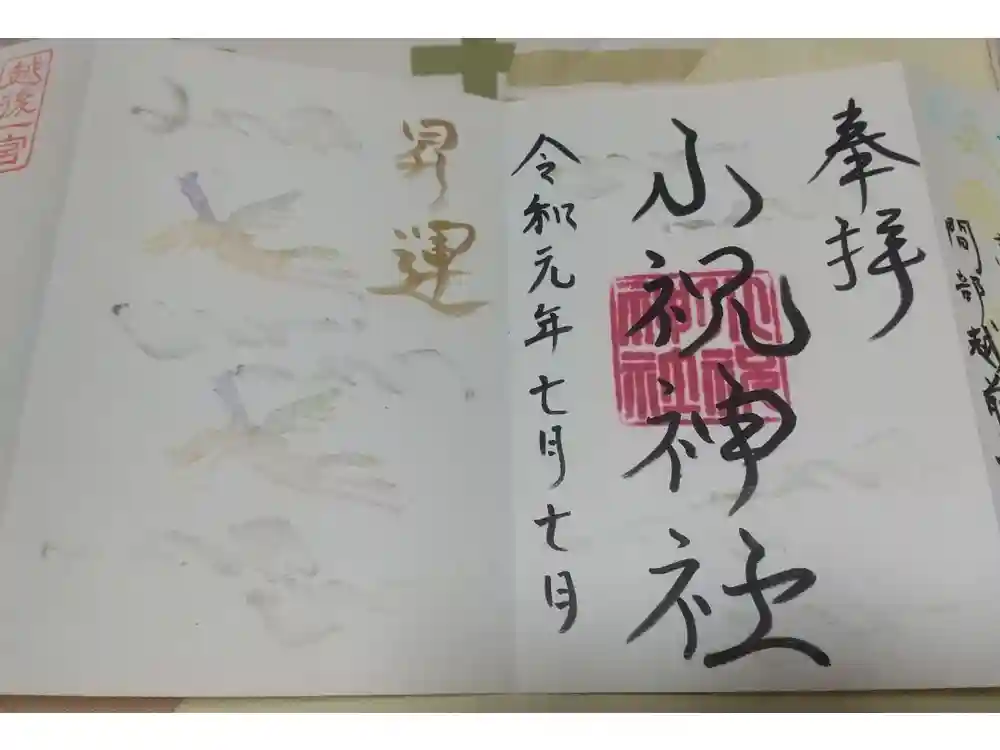 間部越前
奉拝
小祝神社
小祝神社
令和元年七月七日
昇運
越後一宮